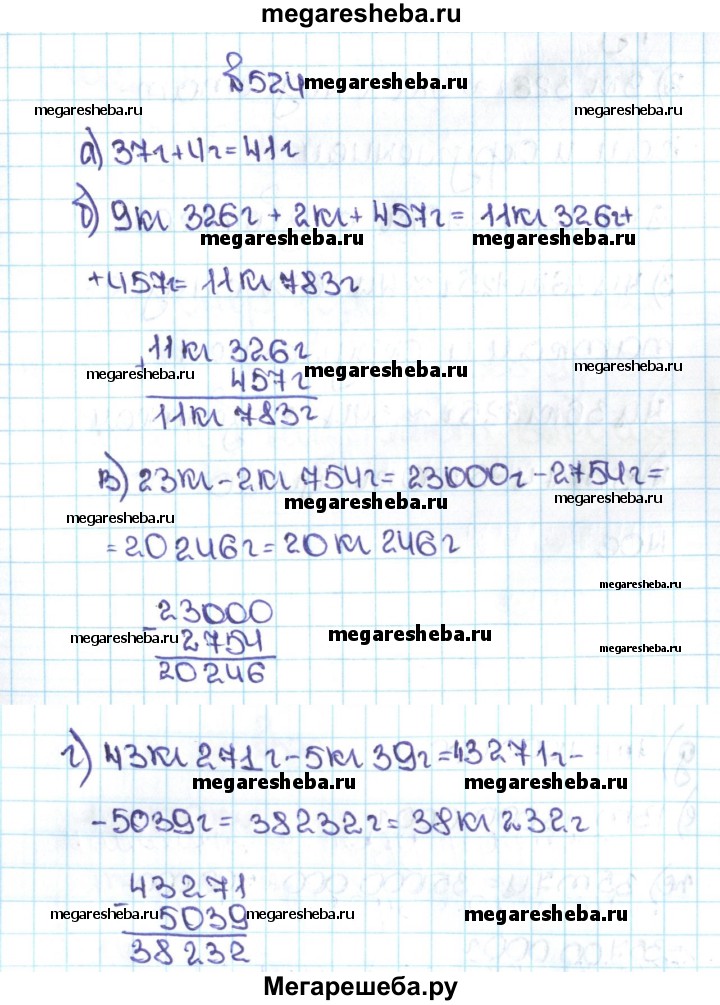 megaresheba.ru
№524 megaresheba.ru
megaresheba.ru megaresheba.ru
а) 37г+4г=41г
б) 9кг 326г + 2кг + 457г = 11кг 326г+
megaresheba.ru megaresheba.ru
+457г= 11кг 783г
+11кг 326г
megaresheba.ru megaresheba.ru
457г
11кг 783г
в) 23кг-2кг 754г= 23000г-2754г=
megaresheba.ru megaresheba.ru
megaresheba.ru
=20246г=20кг 246г
megaresheba.ru
-23000
megaresheba.ru megaresheba.ru
2754 megaresheba.ru
20246
г) 43кг 271г-5кг 39г=43271г-
megaresheba.ru megaresheba.ru
-5039г= 38232г= 38кг 232г
-43271
megaresheba.ru 5039 megaresheba.ru megaresheba.ru
38232
Мегарешеба.ру